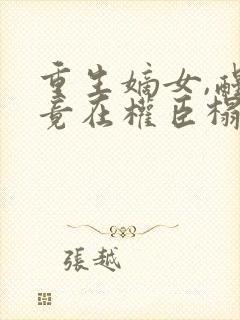 重生嫡女,醒
竟在權臣榻
張越